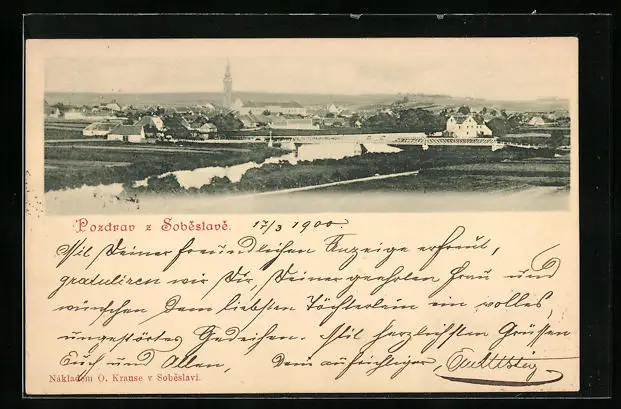 Pozdrav z Soběslavě. 17/3 1900.
Mit Deiner freundlichen Anzeige erfreut,
gratuliren wir Dir, Deiner geehrten Frau und
wünschen dem liebsten Töchterlein ein volles,
ungestörtes Gedeihen. Mit herzlichsten Grüssen
Euch und Allen, Dein aufrichtiger,
Nákladem O. Krause v Soběslavi.